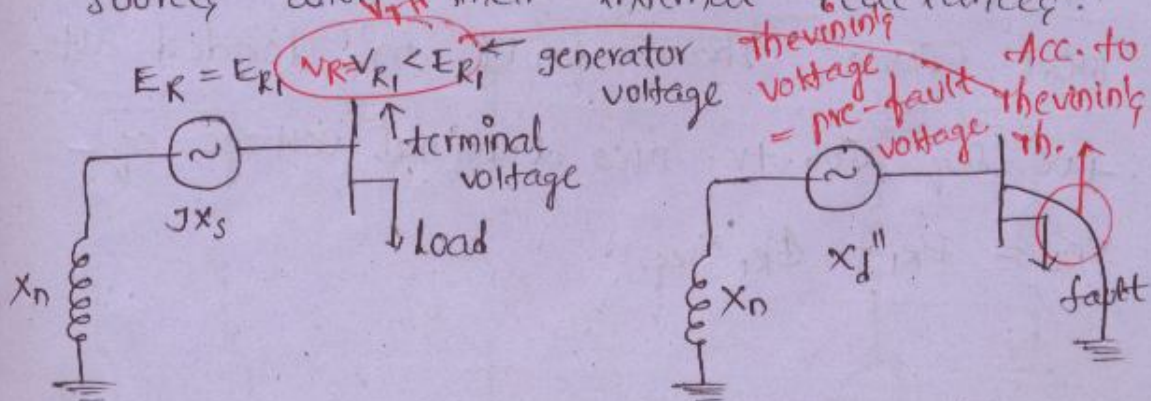 E_R = E_R1 V_R=V_R1 < E_R1 ← generator voltage
terminal voltage
Load
JX_S
X_n
thevining voltage = pre-fault voltage
Acc. to thevining th.
X_d"
X_n
fault